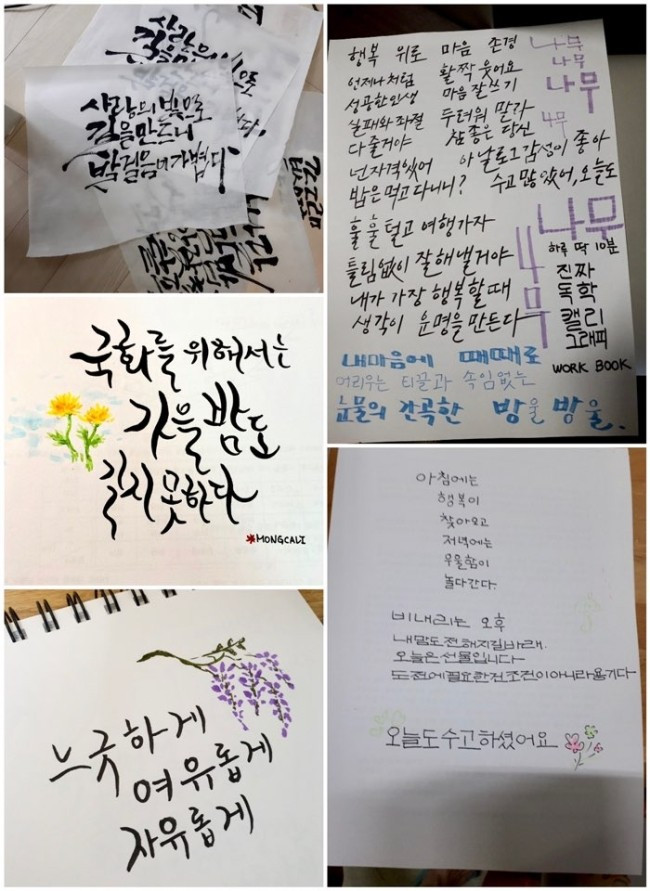 사랑의 빛으로
길을 만드니
발걸음이 가볍다
국화를 위해서는
가을 밤도
길지 못하다
MONGCALI
느긋하게
여유롭게
자유롭게
행복 위로 마음 존경
언제나처럼 활짝 웃어요
성공한 인생 마음 잘 쓰기
실패와 좌절 두려워 말라
다 줄거야 참 좋은 당신
넌 자격있어 아날로그 감성이 좋아
밥은 먹고 다니니? 수고 많았어, 오늘도
훌훌 털고 여행가자
틀림없이 잘 해낼거야
내가 가장 행복할 때
생각이 운명을 만든다
나무
나무
나무
나무
하루 딱 10분
진짜
독학
캘리
그래피
WORK BOOK
내마음에 때때로
어리우는 티끌과 속임없는
눈물의 간곡한 방울방울.
아침에는
행복이
찾아오고
저녁에는
우울함이
놀다간다.
비내리는 오후
내맘도 전해지길 바래.
오늘은 선물입니다
도전에 필요한건 조건이 아니라 용기다
오늘도 수고하셨어요